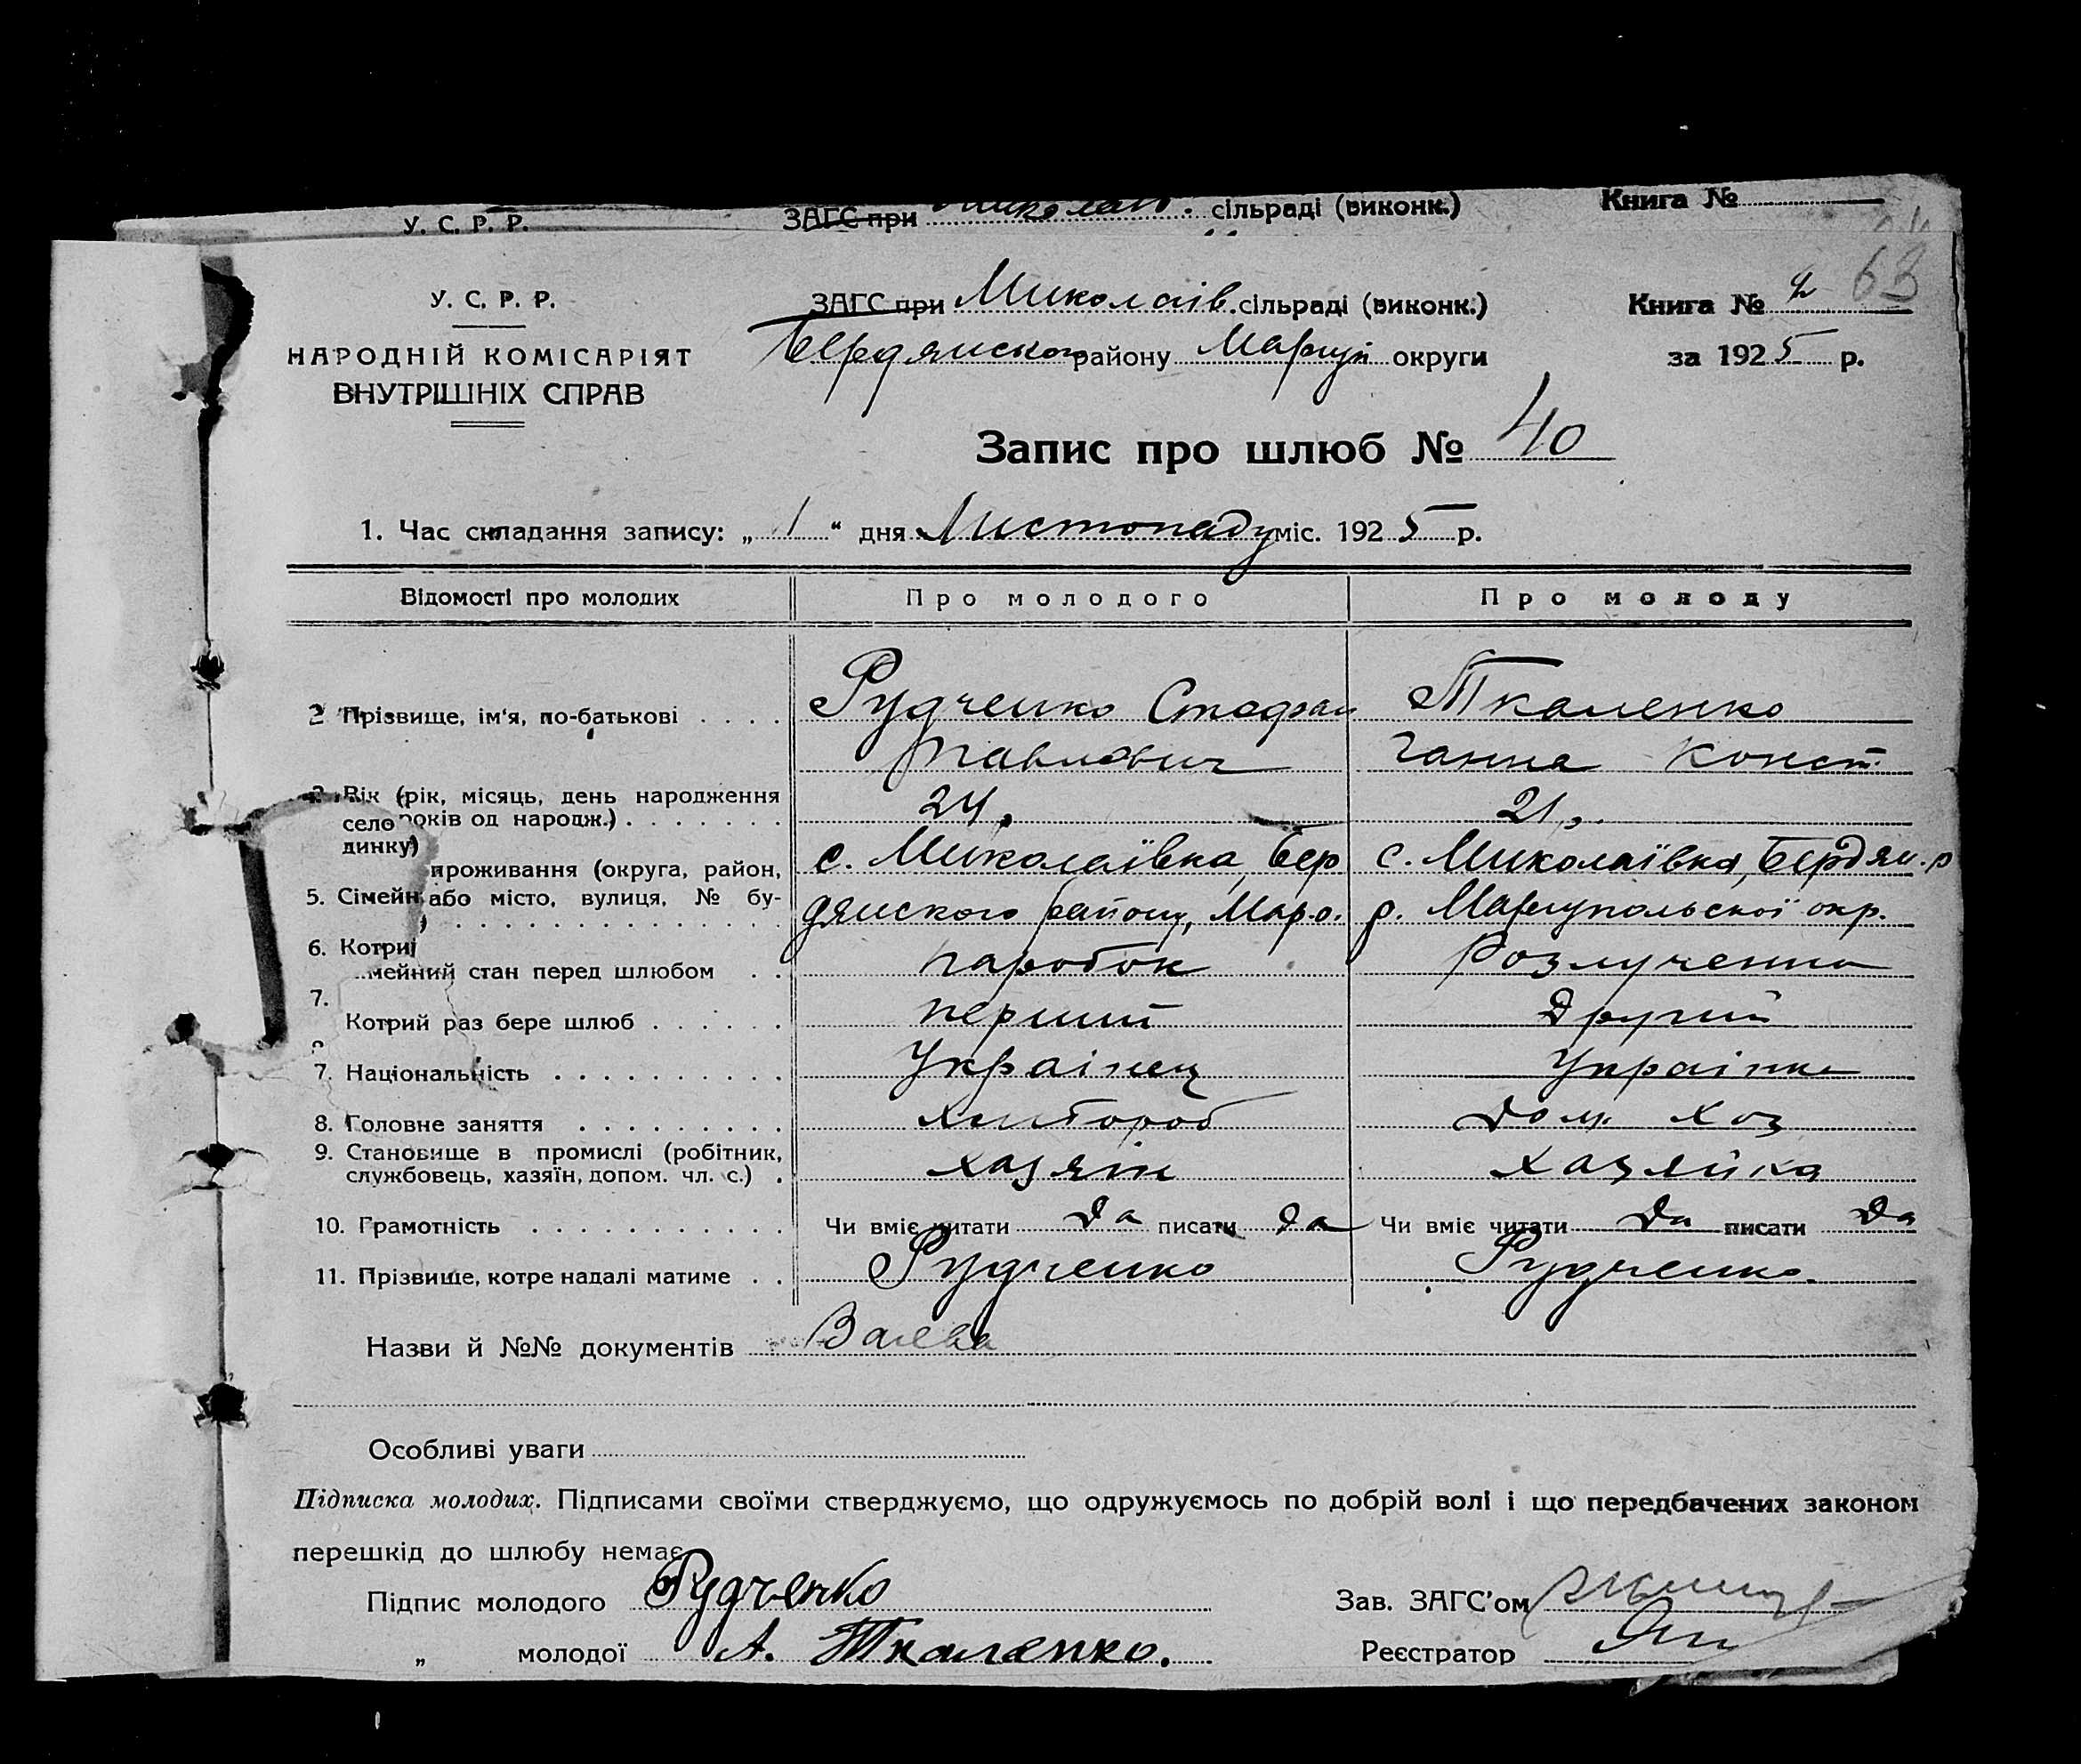 У. С. Р. Р. ЗАГС при сільраді (виконк.) Книга №
63
У. С. Р. Р. ЗАГС при Миколаїв. сільраді (виконк.) Книга № 2
НАРОДНІЙ КОМІСАРІЯТ Бердянского району Маріуп округи за 1925 р.
ВНУТРІШНІХ СПРАВ
Запис про шлюб № 40
1. Час складання запису: „ 1 “ дня Листопаду міс. 1925 р.
Відомості про молодих Про молодого Про молоду
2 Прізвище, ім‘я, по-батькові Рудченко Стефан Ткаленко
Павлович Ганна Конст.
Вік (рік, місяць, день народження 24. 21.
село років од народж.)
динку)
проживання (округа, район, с. Миколаївка, Бер с. Миколаївка, Бердян. р
5. Сімейн або місто, вулиця, № бу- дянского району, Мар.о. р. Маріупольської окр.
6. Котрий
мейний стан перед шлюбом паробок Розлученна
7.
Котрий раз бере шлюб перший Другий
7. Національність Украінец Украінка
8. Головне заняття хлібороб Дом. Хоз
9. Становище в промислі (робітник,
службовець, хазяїн, допом. чл. с.) хазяін Хазяйка
10. Грамотність Чи вміє читати да писати да Чи вміє читати да писати да
11. Прізвище, котре надалі матиме Рудченко Рудченко.
Назви й №№ документів
Особливі уваги
Підписка молодих. Підписами своїми стверджуємо, що одружуємось по добрій волі і що передбачених законом
перешкід до шлюбу немає.
Підпис молодого Рудченко Зав. ЗАГС’ом
„ молодої А. Ткаленко. Реєстратор